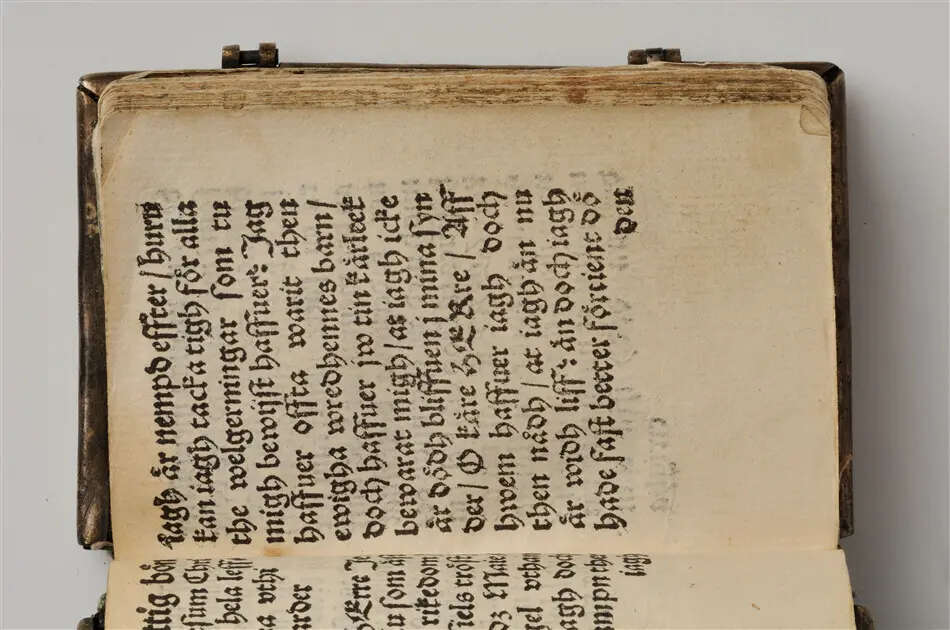 hela
vthi
HErre
som
rikedom
doch
iagh
iagh är nempd effter / huru
kan iagh tacka tigh för alla
the welgerningar som tu
migh bewijst haffuer: Jag
haffuer offta warit then
ewigha wredhennes barn /
doch haffuer jw tin kärleek
bewarat migh / at iagh icke
är dödh bliffuen j mina syn
der / O käre HERre / Aff
hwem haffuer iagh doch
then nådh / at iagh än nu
är widh liff: än doch iagh
hade fast betrer förtient dö
den